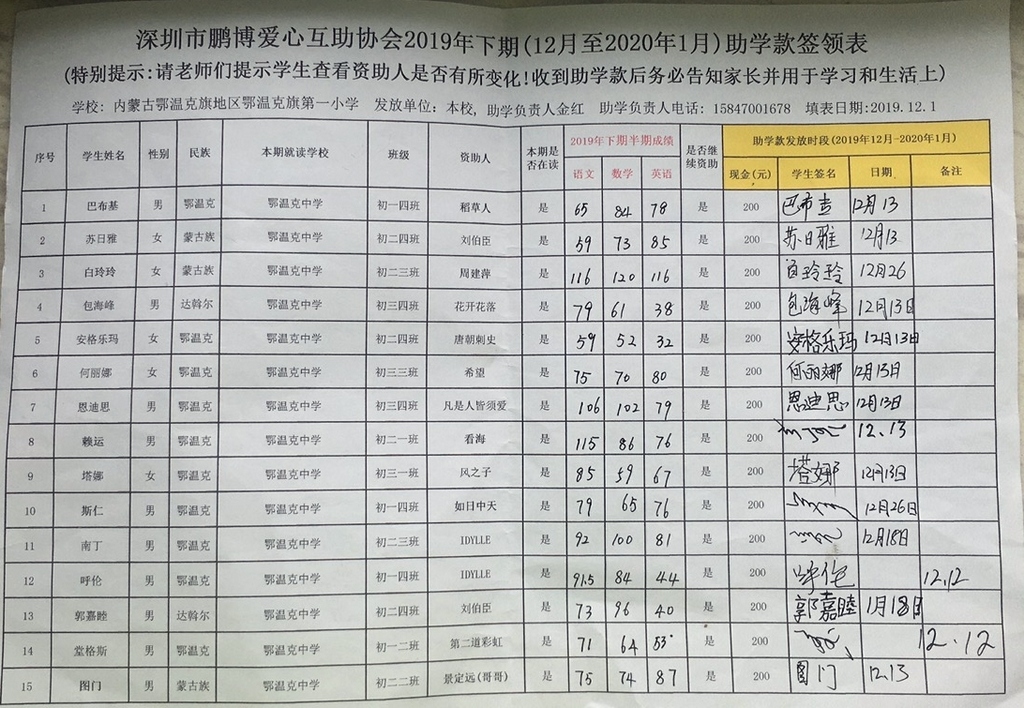 深圳市鹏博爱心互助协会2019年下期(12月至2020年1月)助学款签领表
(特别提示:请老师们提示学生查看资助人是否有所变化!收到助学款后务必告知家长并用于学习和生活上)
学校: 内蒙古鄂温克旗地区鄂温克旗第一小学 发放单位: 本校, 助学负责人金红 助学负责人电话: 15847001678 填表日期:2019.12.1
序号 学生姓名 性别 民族 本期就读学校 班级 资助人 本期是否在读 2019年下期半期成绩 是否继续资助 助学款发放时段(2019年12月-2020年1月)
语文 数学 英语 现金(元) 学生签名 日期 备注
1 巴布基 男 鄂温克 鄂温克中学 初一四班 稻草人 是 65 84 78 是 200 巴布 12月13
2 苏日雅 女 蒙古族 鄂温克中学 初二四班 刘伯臣 是 59 73 85 是 200 苏日雅 12月13
3 白玲玲 女 蒙古族 鄂温克中学 初二三班 周建萍 是 116 120 116 是 200 白玲玲 12月26
4 包海峰 男 达斡尔 鄂温克中学 初三四班 花开花落 是 79 61 38 是 200 包海峰 12月13日
5 安格乐玛 女 鄂温克 鄂温克中学 初二四班 唐朝刺史 是 59 52 32 是 200 安格乐玛 12月13日
6 何丽娜 女 鄂温克 鄂温克中学 初三三班 希望 是 75 70 80 是 200 何丽娜 12月13日
7 恩迪思 男 鄂温克 鄂温克中学 初三四班 凡是人皆须爱 是 106 102 79 是 200 恩迪思 12月13日
8 赖运 男 鄂温克 鄂温克中学 初二一班 看海 是 115 86 76 是 200 12.13
9 塔娜 女 鄂温克 鄂温克中学 初三一班 风之子 是 85 59 67 是 200 塔娜 12月13日
10 斯仁 男 鄂温克 鄂温克中学 初一四班 如日中天 是 79 65 76 是 200 12月26日
11 南丁 男 鄂温克 鄂温克中学 初二三班 IDYLLE 是 92 100 81 是 200 12月18日
12 呼伦 男 鄂温克 鄂温克中学 初一四班 IDYLLE 是 91.5 84 44 是 200 12.12
13 郭嘉睦 男 达斡尔 鄂温克中学 初二四班 刘伯臣 是 73 96 40 是 200 郭嘉睦 1月18日
14 堂格斯 男 鄂温克 鄂温克中学 初一二班 第二道彩虹 是 71 64 53 是 200 12.12
15 图门 男 蒙古族 鄂温克中学 初二二班 景定远(哥哥) 是 75 74 87 是 200 图门 12.13